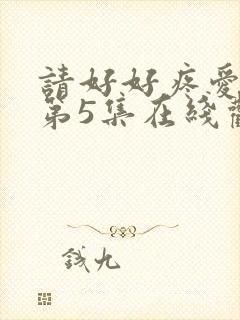 請好好疼愛
第5集在綫
钱九